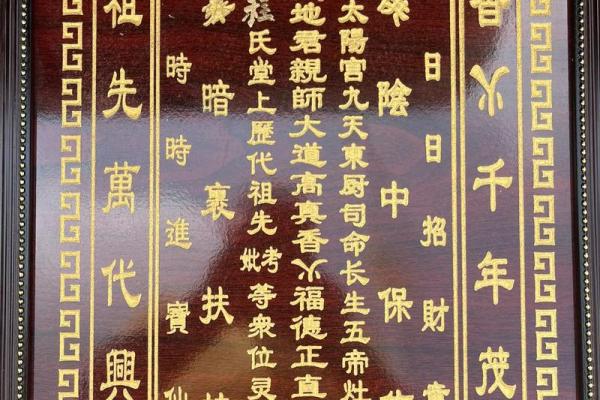 香火千年茂
日日招財童
陰中保
太陽宮九天東厨司命长生五帝灶
地君親師大道高真香火福德正直
氏堂上歷代祖先考妣等衆位灵
暗裏扶
時時進寶仙
祖先萬代興